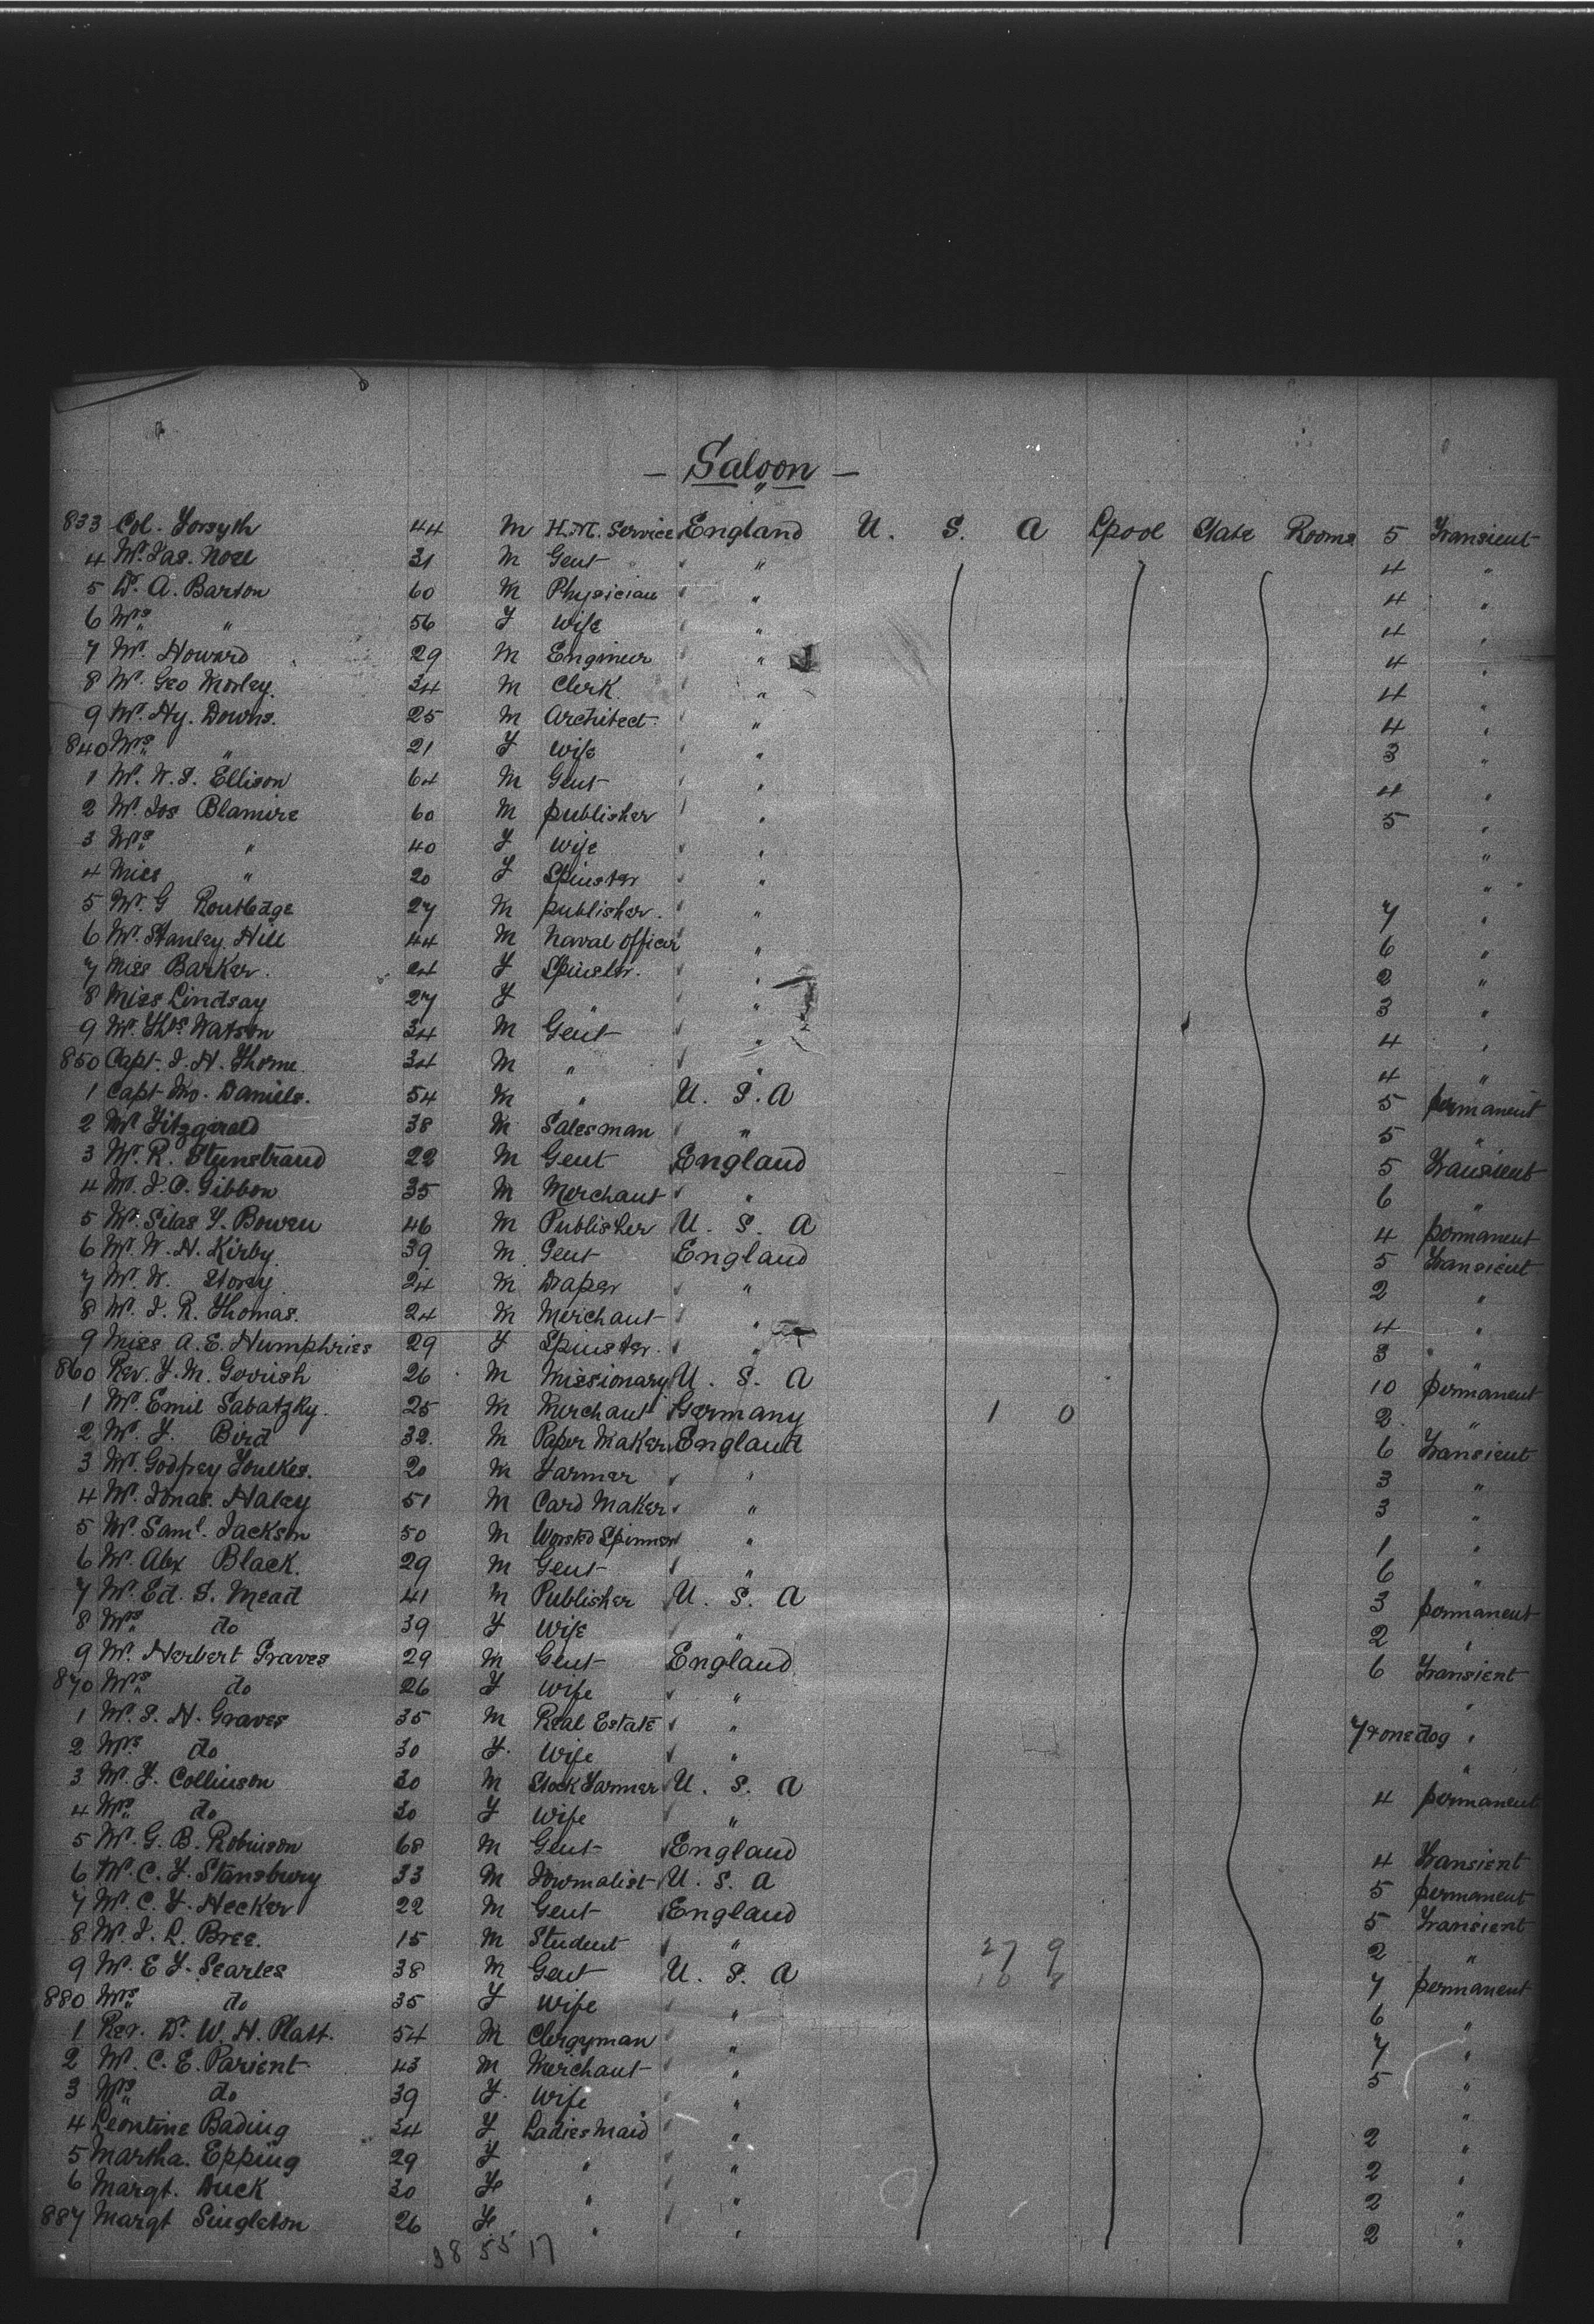 - Saloon -
833 Col. Forsyth 44 M H.M. Service England U. S. A Lpool State Rooms 5 Transient
4 Mr. Jas. Noel 31 M Gent " " 4 "
5 Dr. A. Barton 60 M Physician " 4 "
6 Mrs " 56 F Wife " 4 "
7 Mr. Howard 29 M Engineer " 4 "
8 Mr. Geo Morley 34 M Clerk " 4 "
9 Mr. Hy. Downs. 25 M Architect " 4 "
840 Mrs " 21 F Wife " 3 "
1 Mr. W. J. Ellison 64 M Gent " 4 "
2 Mr. Jos Blamire 60 M publisher " 5 "
3 Mrs " 40 F Wife " "
4 Miss " 20 F Spinster " "
5 Mr. G Routledge 27 M publisher. " 7 "
6 Mr. Stanley Hill 44 M Naval officer " 6 "
7 Miss Barker. 24 F Spinster. " 2 "
8 Miss Lindsay 27 F " " 3 "
9 Mr. Thos Watson 34 M Gent " 4 "
850 Capt. J. H. Thorne 34 M " " 4 "
1 Capt Daniels. 54 M " U. S. A 5 permanent
2 Mr Fitzgerald 38 M Salesman " 5 "
3 Mr. R. Stenstrand 22 M Gent England 5 Transient
4 Mr. J. C. Gibbon 35 M Merchant " 6 "
5 Mr. Silas F. Bowen 46 M Publisher U. S. A 4 permanent
6 Mr. W. H. Kirby 39 M Gent England 5 Transient
7 Mr. W. Storey 24 M Draper " 2 "
8 Mr. J. R. Thomas. 24 M Merchant " 4 "
9 Miss A. E. Humphries 29 F Spinster. " 3 "
860 Rev. J. M. Gerrish 26 M Missionary U. S. A 10 permanent
1 Mr. Emil Sabatzky. 25 M Merchant Germany 1 0 2 "
2 Mr. F. Bird 32 M Paper Maker England 6 Transient
3 Mr. Godfrey Foulkes. 20 M Farmer " 3 "
4 Mr. Jonas Haley 51 M Card Maker " 3 "
5 Mr. Saml. Jackson 50 M Worsted Spinner " 1 "
6 Mr. Alex Black. 29 M Gent " 6 "
7 Mr. Ed. S. Mead 41 M Publisher U. S. A 3 permanent
8 Mrs do 39 F Wife " 2 "
9 Mr. Herbert Graves 29 M Gent England 6 Transient
870 Mrs do 26 F Wife " "
1 Mr. S. H. Graves 35 M Real Estate " 7 & one dog "
2 Mrs do 30 F. Wife " "
3 Mr. F. Collinson 30 M Stock Farmer U. S. A 4 permanent
4 Mrs do 30 F Wife "
5 Mr. G. B. Robinson 68 M Gent England 4 Transient
6 Mr. C. F. Stansbury 33 M Journalist U. S. A 5 permanent
7 Mr. C. F. Hecker 22 M Gent England 5 Transient
8 Mr. J. R. Bree. 15 M Student " 27 9 2 "
9 Mr. E F. Searles 38 M Gent U. S. A 7 permanent
880 Mrs do 35 F Wife " 6 "
1 Rev. Dr. W. H. Platt. 54 M Clergyman " 7 "
2 Mr. C. E. Parient 43 M Merchant " 5 "
3 Mrs do 39 F. Wife " "
4 Leontine Bading 34 F Ladies Maid " 2 "
5 Martha. Epping 29 F " " 2 "
6 Margt. Duck 30 F " " 2 "
887 Margt Singleton 26 F " " 2 "
38 55 17